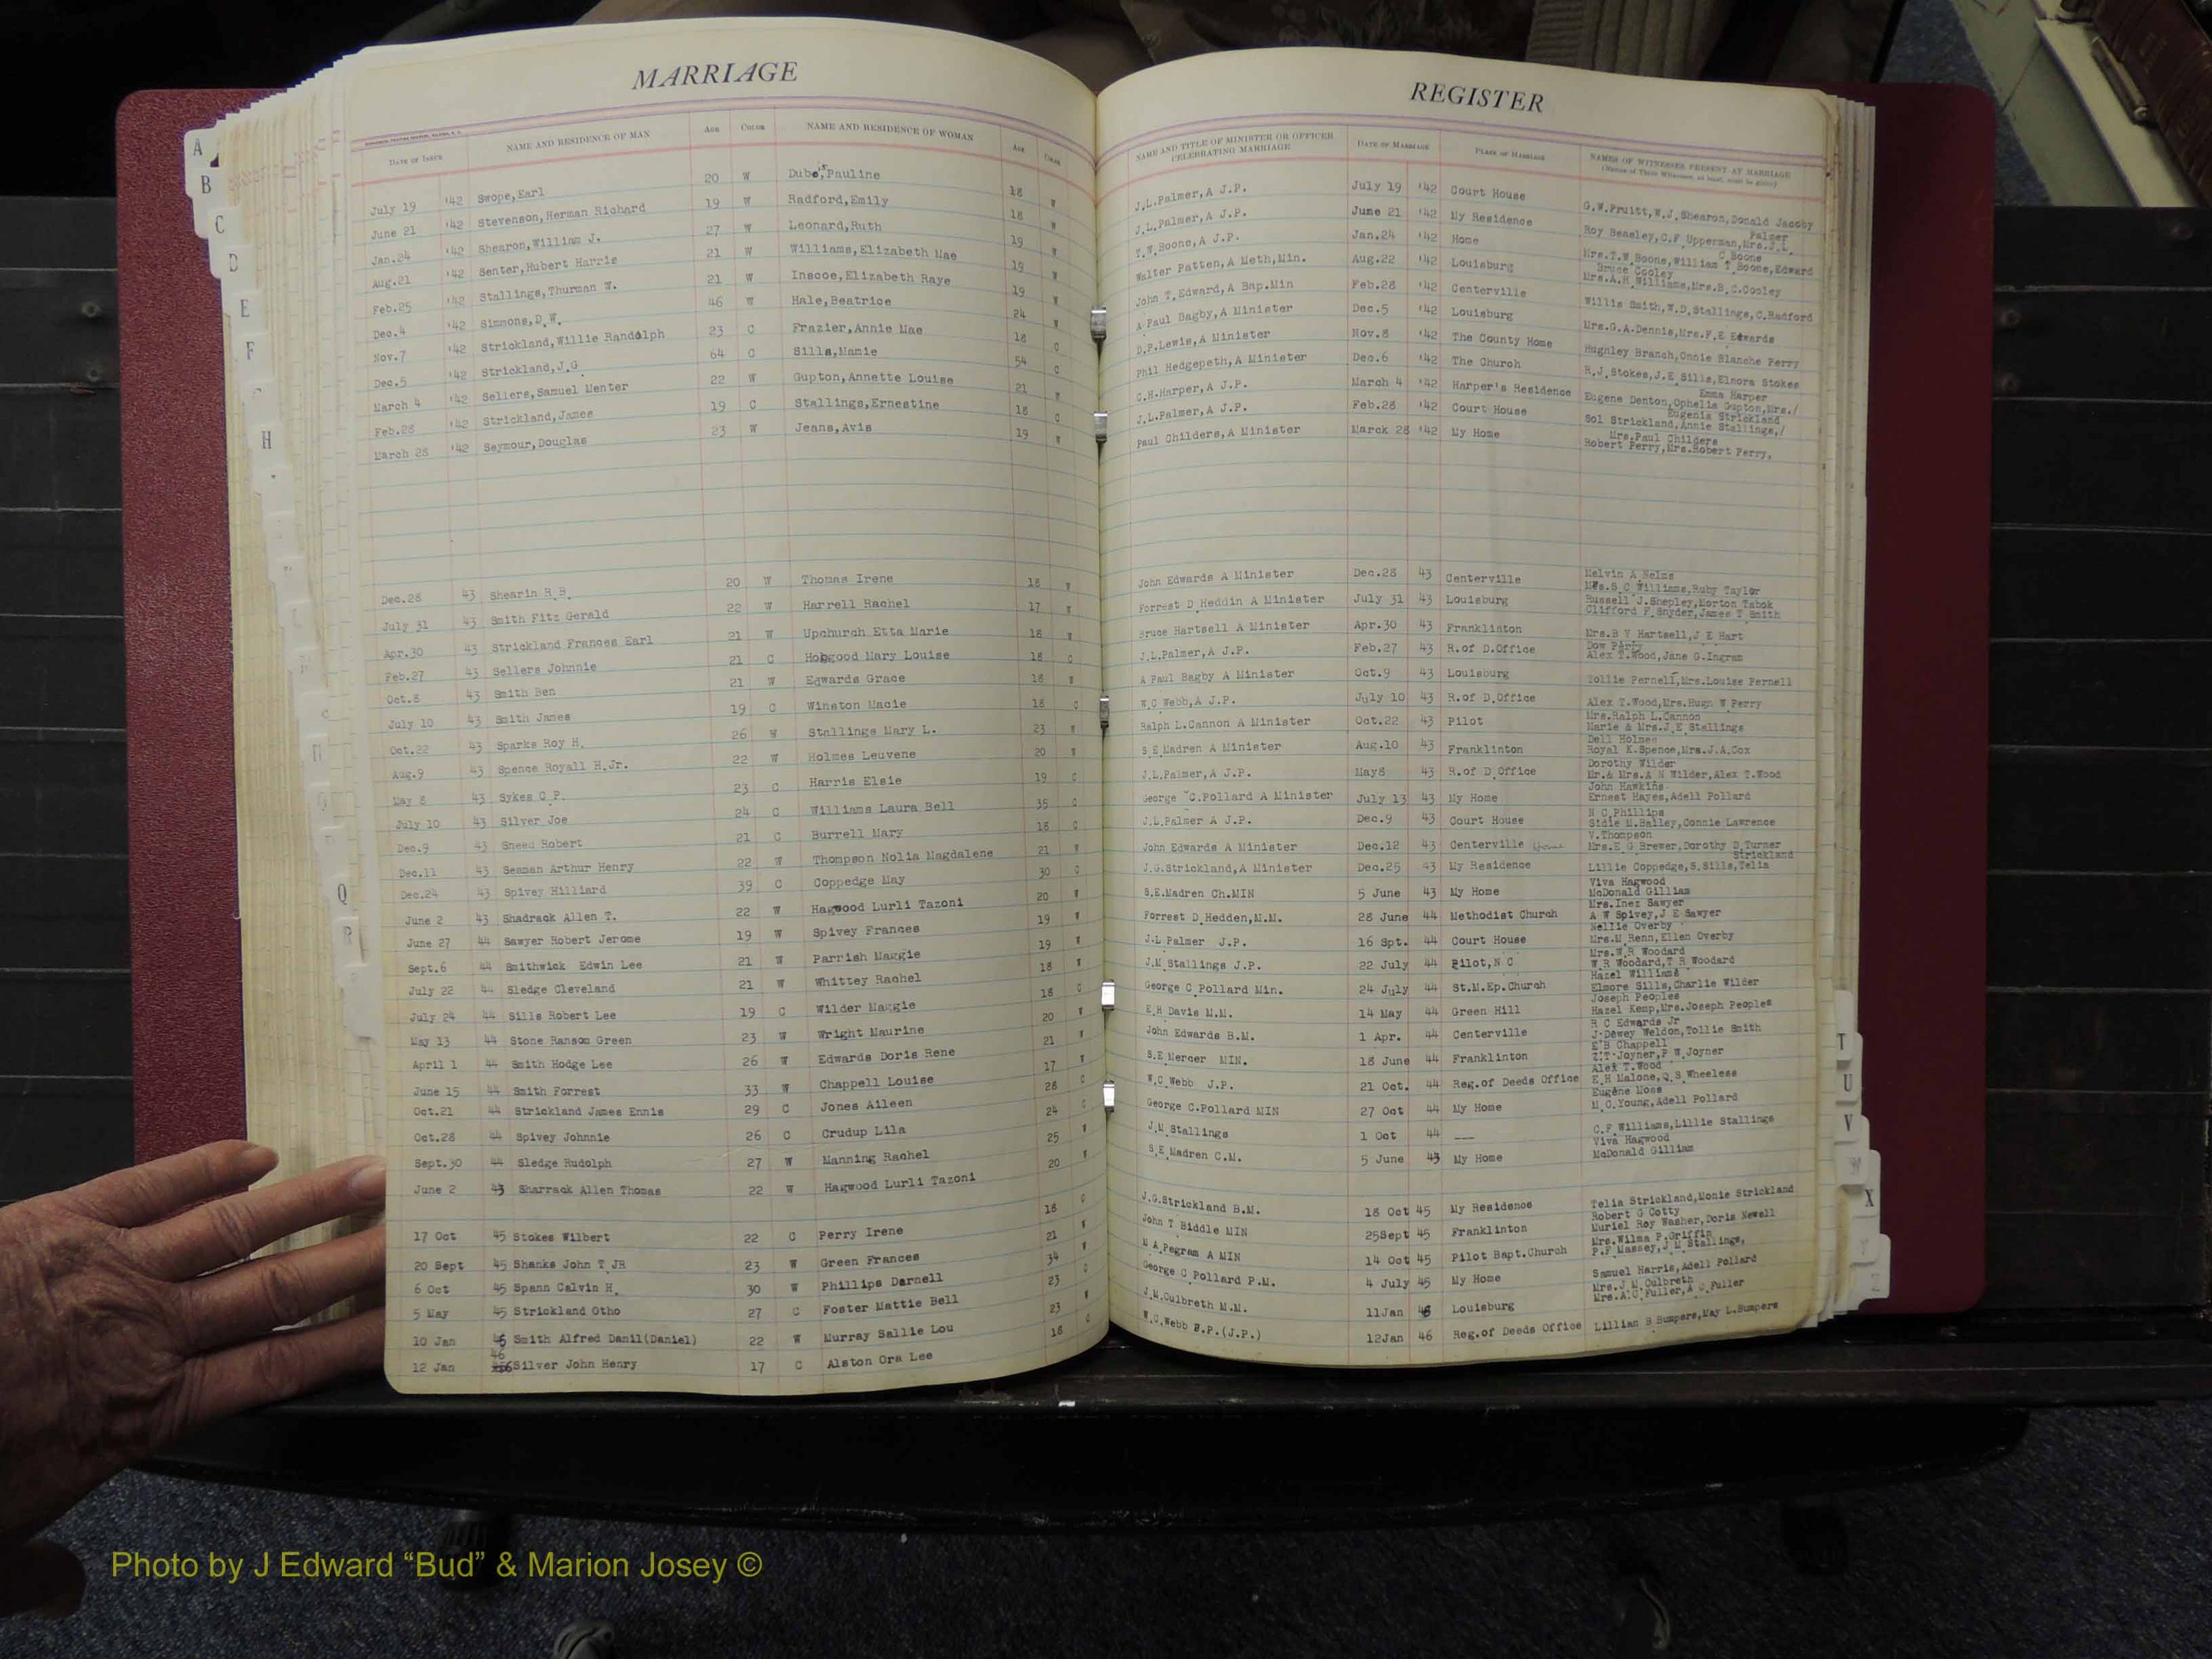 MARRIAGE REGISTER
DATE OF ISSUE NAME AND RESIDENCE OF MAN AGE COLOR NAME AND RESIDENCE OF WOMAN AGE COLOR NAME AND TITLE OF MINISTER OR OFFICER CELEBRATING MARRIAGE DATE OF MARRIAGE PLACE OF MARRIAGE NAMES OF WITNESSES PRESENT AT MARRIAGE
(Names of Three Witnesses, at least, must be given)
July 19 '42 Swope,Earl 20 W Dube's,Pauline 18 W J.L.Palmer,A J.P. July 19 '42 Court House G.W.Pruitt,W.J.Shearon,Donald Jacoby
June 21 '42 Stevenson,Herman Richard 19 W Radford,Emily 18 W J.L.Palmer,A J.P. June 21 '42 My Residence Roy Beasley,C.F.Upperman,Mrs.J.L. Palmer
Jan.24 '42 Shearon,William J. 27 W Leonard,Ruth 19 W T.W.Boone,A J.P. Jan.24 '42 Home Mrs.T.W.Boone,William T Boone,Edward C Boone
Aug.21 '42 Senter,Hubert Harris 21 W Williams,Elizabeth Mae 19 W Walter Patten,A Meth,Min. Aug.22 '42 Louisburg Bruce Cooley Mrs.A.H.Williams,Mrs.B.C.Cooley
Feb.25 '42 Stallings,Thurman W. 21 W Inscoe,Elizabeth Raye 19 W John T.Edward,A Bap.Min Feb.28 '42 Centerville Willis Smith,W.D.Stallings,C.Radford
Dec.4 '42 Simmons,D.W. 46 W Hale,Beatrice 24 W A Paul Bagby,A Minister Dec.5 '42 Louisburg Mrs.G.A.Dennis,Mrs.F.E Edwards
Nov.7 '42 Strickland,Willie Randolph 23 C Frazier,Annie Mae 18 C D.P.Lewis,A Minister Nov.8 '42 The County Home Hughley Branch,Onnie Blanche Perry
Dec.5 '42 Strickland,J.G 64 C Sills,Mamie 54 C Phil Hedgepeth,A Minister Dec.6 '42 The Church R.J.Stokes,J.E Sills,Elnora Stokes
March 4 '42 Sellers,Samuel Menter 22 W Gupton,Annette Louise 21 W C.H.Harper,A J.P. March 4 '42 Harper's Residence Eugene Denton,Ophelia Gupton,Mrs./ Emma Harper
Feb.28 '42 Strickland,James 19 C Stallings,Ernestine 18 C J.L.Palmer,A J.P. Feb.28 '42 Court House Sol Strickland,Annie Stallings,/ Eugenia Strickland
March 28 '42 Seymour,Douglas 23 W Jeans,Avis 19 W Paul Childers,A Minister Marck 28 '42 My Home Robert Perry,Mrs.Robert Perry, Mrs.Paul Childers
Dec.28 43 Shearin R.B. 20 W Thomas Irene 18 W John Edwards A Minister Dec.28 43 Centerville Melvin A Nelms Mrs.S C Williams,Ruby Taylor
July 31 43 Smith Fitz Gerald 22 W Harrell Rachel 17 W Forrest D Heddin A Minister July 31 43 Louisburg Russell J.Shepley,Morton Tabok Clifford F Snyder,James T Smith
Apr.30 43 Strickland Frances Earl 21 W Upchurch Etta Marie 18 W Bruce Hartsell A Minister Apr.30 43 Franklinton Mrs.B V Hartsell,J E Hart
Feb.27 43 Sellers Johnnie 21 C Hobgood Mary Louise 18 C J.L.Palmer,A J.P. Feb.27 43 R.of D.Office Dow Parry Alex T.Wood,Jane G.Ingram
Oct.8 43 Smith Ben 21 W Edwards Grace 18 W A Paul Bagby A Minister Oct.9 43 Louisburg Tollie Pernell,Mrs.Louise Pernell
July 10 43 Smith James 19 C Winston Macie 18 C W.C Webb,A J.P. July 10 43 R.of D.Office Alex T.Wood,Mrs.Hugh W Perry
Oct.22 43 Sparks Roy H. 26 W Stallings Mary L. 23 W Ralph L.Cannon A Minister Oct.22 43 Pilot Mrs.Ralph L.Cannon Marie & Mrs.J.E Stallings
Aug.9 43 Spence Royall H.Jr. 22 W Holmes Leuvene 20 W S E Madren A Minister Aug.10 43 Franklinton Dell Holmes Royal K.Spence,Mrs.J.A.Cox
May 8 43 Sykes C P. 23 C Harris Elsie 19 C J.L.Palmer,A J.P. May8 43 R.of D.Office Dorothy Wilder Mr.& Mrs.A N Wilder,Alex T.Wood
July 10 43 Silver Joe 24 C Williams Laura Bell 35 C George C.Pollard A Minister July 13 43 My Home John Hawkins Ernest Hayes,Adell Pollard
Dec.9 43 Sneed Robert 21 C Burrell Mary 18 C J.L.Palmer A J.P. Dec.9 43 Court House N C Phillips Sidie M.Bailey,Connie Lawrence
Dec.11 43 Seaman Arthur Henry 22 W Thompson Nolia Magdalene 21 W John Edwards A Minister Dec.12 43 Centerville Home V.Thompson Mrs.E G Brewer,Dorothy D Turner
Dec.24 43 Spivey Hilliard 39 C Coppedge May 30 C J.G.Strickland,A Minister Dec.25 43 My Residence Lillie Coppedge,S.Sills,Telia Strickland
June 2 43 Shadrack Allen T. 22 W Hagwood Lurli Tazoni 20 W S.E.Madren Ch.MIN 5 June 43 My Home Viva Hagwood McDonald Gilliam
June 27 44 Sawyer Robert Jerome 19 W Spivey Frances 19 W Forrest D Hedden,M.M. 28 June 44 Methodist Church Mrs.Inez Sawyer A W Spivey,J E Sawyer
Sept.6 44 Smithwick Edwin Lee 21 W Parrish Maggie 19 W J.L Palmer J.P. 16 Spt. 44 Court House Nellie Overby Mrs.M Renn,Ellen Overby
July 22 44 Sledge Cleveland 21 W Whittey Rachel 18 W J.M Stallings J.P. 22 July 44 Pilot,N C Mrs.W R Woodard W R Woodard,T R Woodard
July 24 44 Sills Robert Lee 19 C Wilder Maggie 18 C George C Pollard Min. 24 July 44 St.M.Ep.Church Hazel Williams Elmore Sills,Charlie Wilder
May 13 44 Stone Ransom Green 23 W Wright Maurine 20 W E.H Davis M.M. 14 May 44 Green Hill Joseph Peoples Hazel Kemp,Mrs.Joseph Peoples
April 1 44 Smith Hodge Lee 26 W Edwards Doris Rene 21 W John Edwards B.M. 1 Apr. 44 Centerville R C Edwards Jr J.Dewey Weldon,Tollie Smith
June 15 44 Smith Forrest 33 W Chappell Louise 17 W S.E Mercer MIN. 18 June 44 Franklinton E B Chappell Z.T.Joyner,P W Joyner
Oct.21 44 Strickland James Ennis 29 C Jones Aileen 28 C W.C Webb J.P. 21 Oct. 44 Reg.of Deeds Office Alex T.Wood E.H Malone,Q.S Wheeless
Oct.28 44 Spivey Johnnie 26 C Crudup Lila 24 C George C.Pollard MIN 27 Oct 44 My Home Eugene Moss M.C.Young,Adell Pollard
Sept.30 44 Sledge Rudolph 27 W Manning Rachel 25 W J.M Stallings 1 Oct 44 ___ C.F Williams,Lillie Stallings
June 2 43 Sharrack Allen Thomas 22 W Hagwood Lurli Tazoni 20 W S.E Madren C.M. 5 June 43 My Home Viva Hagwood McDonald Gilliam
17 Oct 45 Stokes Wilbert 22 C Perry Irene 18 C J.G.Strickland B.M. 18 Oct 45 My Residence Telia Strickland,Monie Strickland
20 Sept 45 Shanks John T JR 23 W Green Frances 21 W John T Biddle MIN 25Sept 45 Franklinton Robert G Cotty Muriel Roy Washer,Doris Newell
6 Oct 45 Spann Calvin H. 30 W Phillips Darnell 34 W M A Pegram A MIN 14 Oct 45 Pilot Bapt.Church Mrs.Wilma P.Griffin P.F Massey,J M Stallings,
5 May 45 Strickland Otho 27 C Foster Mattie Bell 23 C George C Pollard P.M. 4 July 45 My Home Samuel Harris,Adell Pollard
10 Jan 46 Smith Alfred Danil(Daniel) 22 W Murray Sallie Lou 23 W J.M.Culbreth M.M. 11Jan 46 Louisburg Mrs.J M.Culbreth Mrs.A.C.Fuller,A C Fuller
12 Jan 46 Silver John Henry 17 C Alston Ora Lee 18 C W.C.Webb B.P.(J.P.) 12Jan 46 Reg.of Deeds Office Lillian B Bumpers,May L.Bumpers
A
B
C
D
E
F
H
Q
R
T
U
V
W
X
Y
Z
Photo by J Edward “Bud” & Marion Josey ©